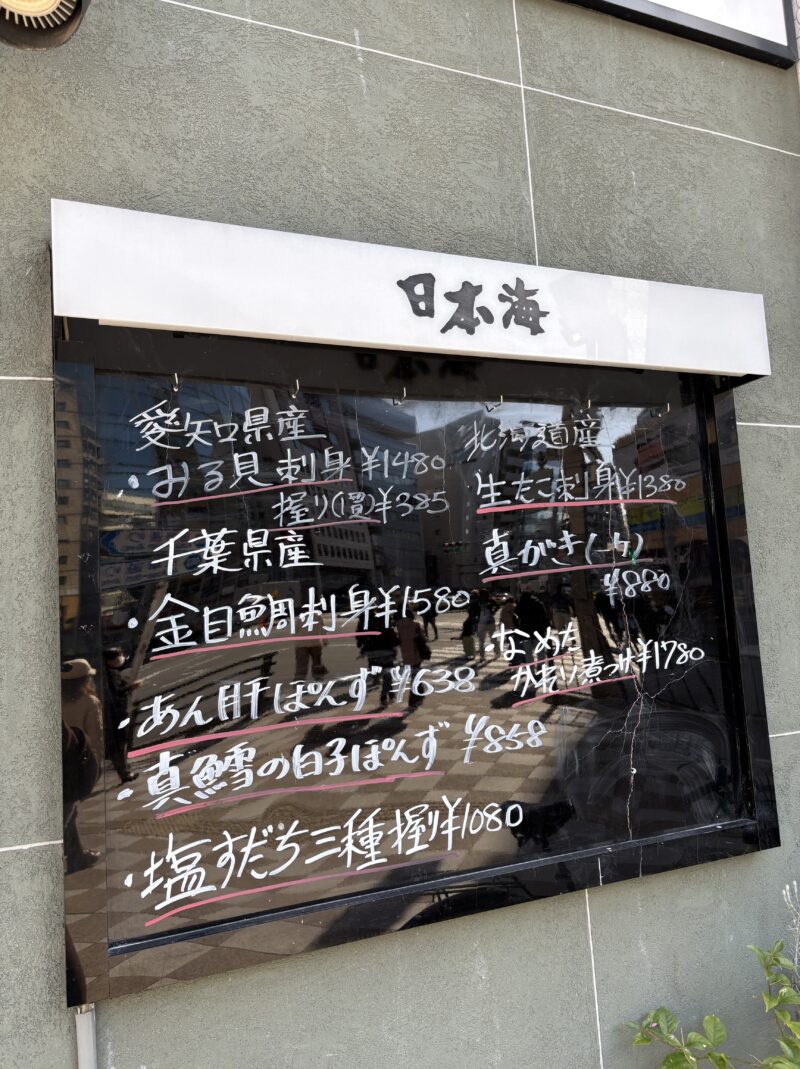 日本海
愛知県産
・みる貝刺身¥1480
握り(1貫)¥385
千葉県産
・金目鯛刺身¥1580
・あん肝ぽんず ¥638
・真鱈の白子ぽんず ¥858
・塩すだち三種握り¥1080
北海道産
生たこ刺身¥1380
真がき(一ケ)
¥880
・なめた
かれい煮つけ¥1780